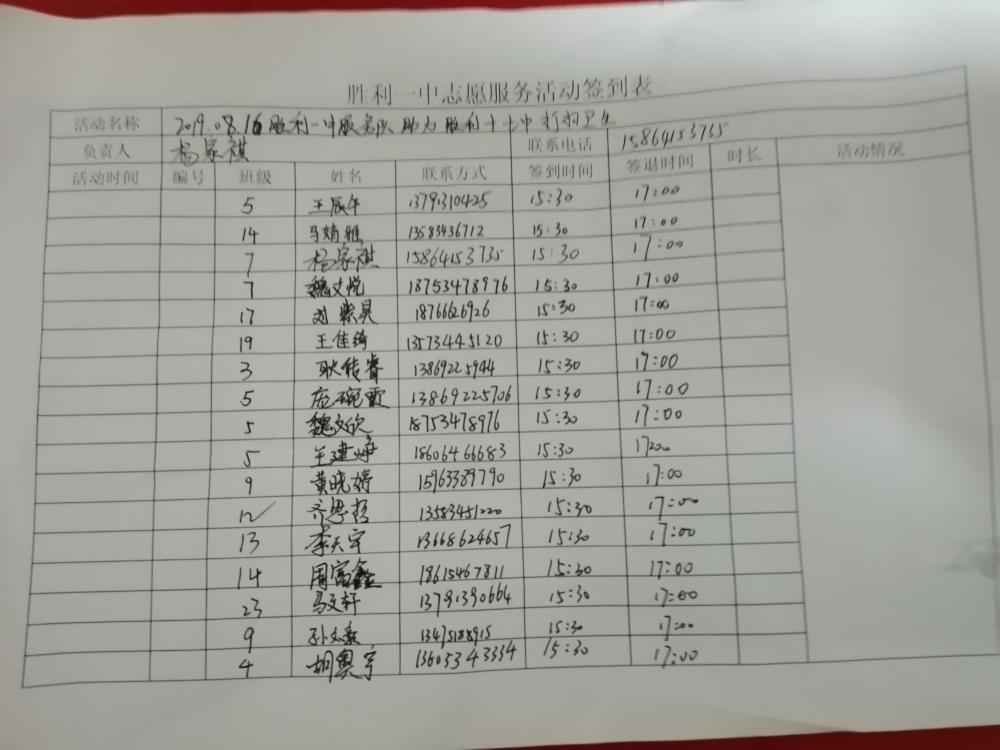 胜利一中志愿服务活动签到表
活动名称 2019.08.16胜利一中服务队助力胜利十七中打扫卫生
负责人 杨家祺 联系电话 15864153735
活动时间 编号 班级 姓名 联系方式 签到时间 签退时间 时长 活动情况
5 王辰午 1379310425 15:30 17:00
14 马婧雅 13583436712 15:30 17:00
7 杨家祺 15864153735 15:30 17:00
7 魏文悦 18753478976 15:30 17:00
17 刘紫昊 1876626926 15:30 17:00
19 王佳绮 13573445120 15:30 17:00
3 耿传睿 13869225944 15:30 17:00
5 13869225706 15:30 17:00
5 魏文欣 18753478976 15:30 17:00
5 王建 18606466683 15:30 17:00
9 黄晓婷 15963389790 15:30 17:00
12 齐思哲 13583451220 15:30 17:00
13 李天宇 13668624657 15:30 17:00
14 周富鑫 18615467811 15:30 17:00
23 马文轩 13791390664 15:30 17:00
9 孙文 13475188915 15:30 17:00
4 胡奥宇 13605343334 15:30 17:00